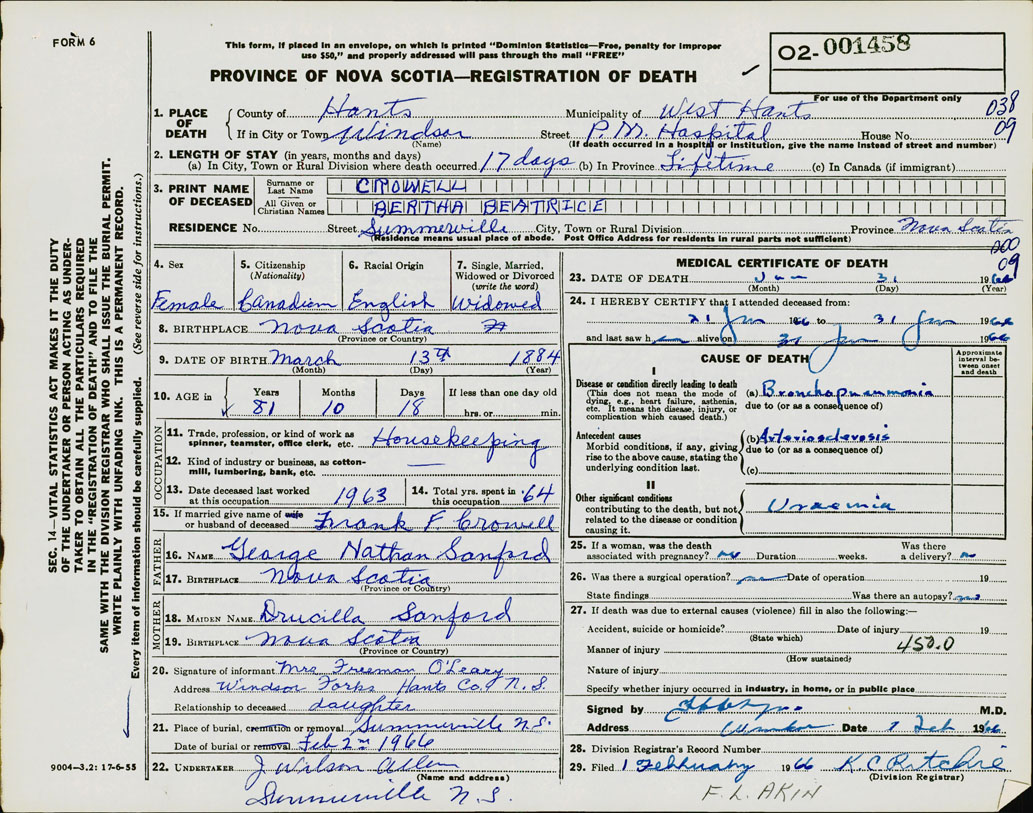 FORM 6
This form, if placed in an envelope, on which is printed "Dominion Statistics—Free, penalty for improper
use $50," and properly addressed will pass through the mail "FREE"
PROVINCE OF NOVA SCOTIA—REGISTRATION OF DEATH
O2-001458
For use of the Department only
038
09
1. PLACE OF DEATH
County of Hants Municipality of West Hants
If in City or Town Windsor Street P.M. Hospital House No.
(Name) (If death occurred in a hospital or institution, give the name instead of street and number)
2. LENGTH OF STAY (in years, months and days)
(a) In City, Town or Rural Division where death occurred 17 days (b) In Province Lifetime (c) In Canada (if immigrant)
3. PRINT NAME OF DECEASED
Surname or Last Name CROWELL
All Given or Christian Names BERTHA BEATRICE
RESIDENCE No. Street Summerville City, Town or Rural Division Province Nova Scotia
(Residence means usual place of abode. Post Office Address for residents in rural parts not sufficient)
200
09
4. Sex Female
5. Citizenship (Nationality) Canadian
6. Racial Origin English
7. Single, Married, Widowed or Divorced (write the word) Widowed
8. BIRTHPLACE Nova Scotia
(Province or Country)
9. DATE OF BIRTH March 13th 1884
(Month) (Day) (Year)
10. AGE in Years 81 Months 10 Days 18 If less than one day old hrs. or min.
OCCUPATION
11. Trade, profession, or kind of work as spinner, teamster, office clerk, etc. Housekeeping
12. Kind of industry or business, as cotton-mill, lumbering, bank, etc. —
13. Date deceased last worked at this occupation 1963
14. Total yrs. spent in this occupation 64
15. If married give name of wife or husband of deceased Frank F Crowell
FATHER
16. NAME George Nathan Sanford
17. BIRTHPLACE Nova Scotia
(Province or Country)
MOTHER
18. MAIDEN NAME Drucilla Sanford
19. BIRTHPLACE Nova Scotia
(Province or Country)
20. Signature of informant Mrs Freeman O'Leary
Address Windsor Forks Hants Co. N.S.
Relationship to deceased daughter
21. Place of burial, cremation or removal Summerville N.S.
Date of burial or removal Feb 2nd 1966
22. UNDERTAKER J Wilson Allen
(Name and address)
Summerville N.S.
MEDICAL CERTIFICATE OF DEATH
23. DATE OF DEATH Jan 31 1966
(Month) (Day) (Year)
24. I HEREBY CERTIFY that I attended deceased from:
21 Jan 1966 to 31 Jan 1966
and last saw h alive on 31 Jan 1966
CAUSE OF DEATH
Approximate interval between onset and death
I
Disease or condition directly leading to death
(This does not mean the mode of dying, e.g., heart failure, asthenia, etc. It means the disease, injury, or complication which caused death.)
(a) Bronchopneumonia
due to (or as a consequence of)
Antecedent causes
Morbid conditions, if any, giving rise to the above cause, stating the underlying condition last.
(b) Arteriosclerosis
due to (or as a consequence of)
(c)
II
Other significant conditions
contributing to the death, but not related to the disease or condition causing it.
Uraemia
25. If a woman, was the death associated with pregnancy? no Duration weeks. Was there a delivery? no
26. Was there a surgical operation? no Date of operation 19
State findings Was there an autopsy? no
27. If death was due to external causes (violence) fill in also the following:—
Accident, suicide or homicide? Date of injury 19
(State which)
Manner of injury 450.0
(How sustained)
Nature of injury
Specify whether injury occurred in industry, in home, or in public place
Signed by M.D.
Address Windsor Date 1 Feb 1966
28. Division Registrar's Record Number
29. Filed 1 February 1966 K.C Ritchie
(Division Registrar)
F. L. AKIN
SEC. 14—VITAL STATISTICS ACT MAKES IT THE DUTY
OF THE UNDERTAKER OR PERSON ACTING AS UNDER-
TAKER TO OBTAIN ALL THE PARTICULARS REQUIRED
IN THE "REGISTRATION OF DEATH" AND TO FILE THE
SAME WITH THE DIVISION REGISTRAR WHO SHALL ISSUE THE BURIAL PERMIT.
WRITE PLAINLY WITH UNFADING INK. THIS IS A PERMANENT RECORD.
Every item of information should be carefully supplied. (See reverse side for instructions.)
9004-3.2: 17-6-55